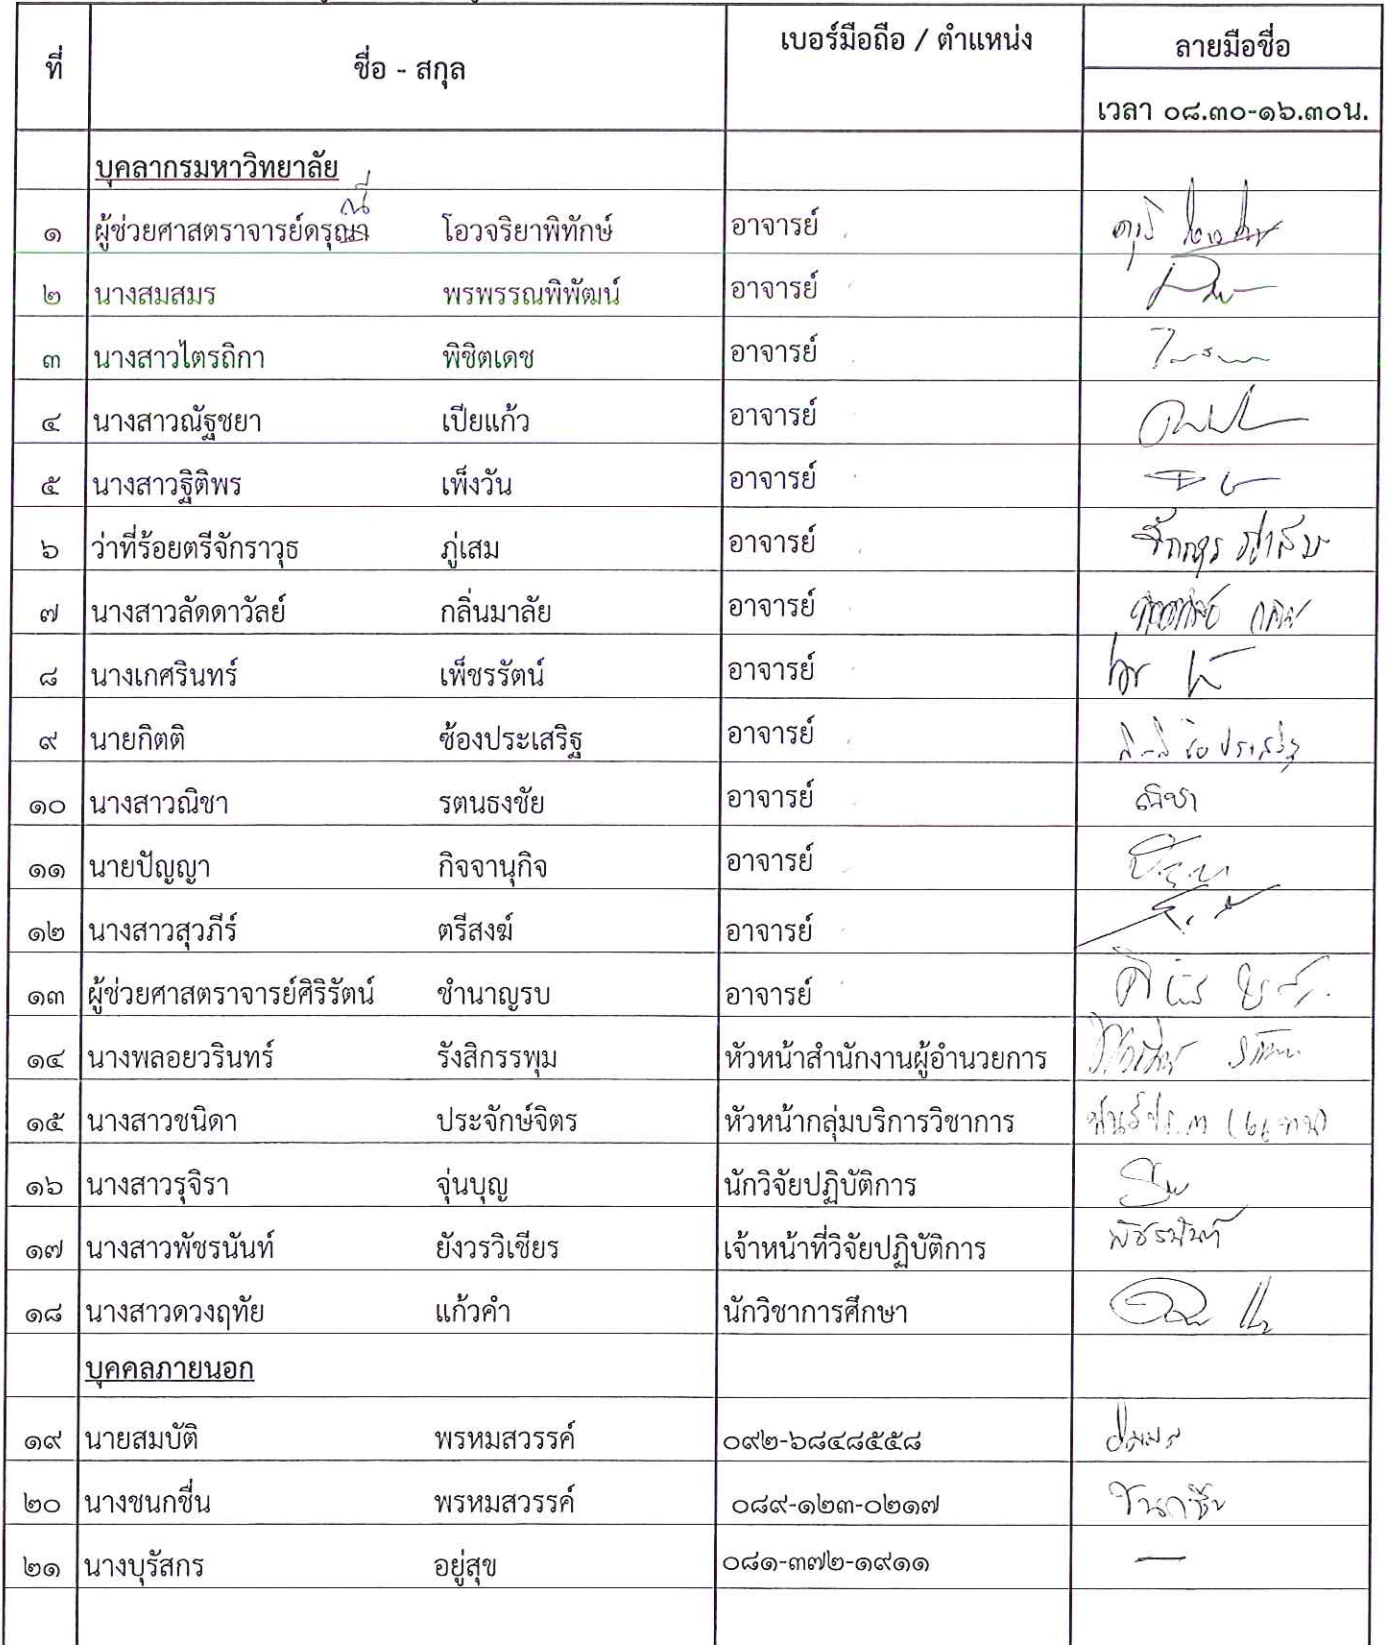 ที่ ชื่อ - สกุล เบอร์มือถือ / ตำแหน่ง ลายมือชื่อ
เวลา ๐๘.๓๐-๑๖.๓๐น.
บุคลากรมหาวิทยาลัย
ณี
๑ ผู้ช่วยศาสตราจารย์ดรุณา โอวจริยาพิทักษ์ อาจารย์
๒ นางสมสมร พรพรรณพิพัฒน์ อาจารย์
๓ นางสาวไตรถิกา พิชิตเดช อาจารย์
๔ นางสาวณัฐชยา เปียแก้ว อาจารย์
๕ นางสาวฐิติพร เพ็งวัน อาจารย์
๖ ว่าที่ร้อยตรีจักราวุธ ภู่เสม อาจารย์
๗ นางสาวลัดดาวัลย์ กลิ่นมาลัย อาจารย์
๘ นางเกศรินทร์ เพ็ชรรัตน์ อาจารย์
๙ นายกิตติ ซ้องประเสริฐ อาจารย์
๑๐ นางสาวณิชา รตนธงชัย อาจารย์ ณิชา
๑๑ นายปัญญา กิจจานุกิจ อาจารย์
๑๒ นางสาวสุวภีร์ ตรีสงฆ์ อาจารย์
๑๓ ผู้ช่วยศาสตราจารย์ศิริรัตน์ ชำนาญรบ อาจารย์
๑๔ นางพลอยวรินทร์ รังสิกรรพุม หัวหน้าสำนักงานผู้อำนวยการ
๑๕ นางสาวชนิดา ประจักษ์จิตร หัวหน้ากลุ่มบริการวิชาการ
๑๖ นางสาวรุจิรา จุ่นบุญ นักวิจัยปฏิบัติการ
๑๗ นางสาวพัชรนันท์ ยังวรวิเชียร เจ้าหน้าที่วิจัยปฏิบัติการ พัชรนันท์
๑๘ นางสาวดวงฤทัย แก้วคำ นักวิชาการศึกษา
บุคคลภายนอก
๑๙ นายสมบัติ พรหมสวรรค์ ๐๙๒-๖๘๔๘๕๕๘
๒๐ นางชนกชื่น พรหมสวรรค์ ๐๘๙-๑๒๓-๐๒๑๗ ชนกชื่น
๒๑ นางบุรัสกร อยู่สุข ๐๘๑-๓๗๒-๑๙๑๑ —